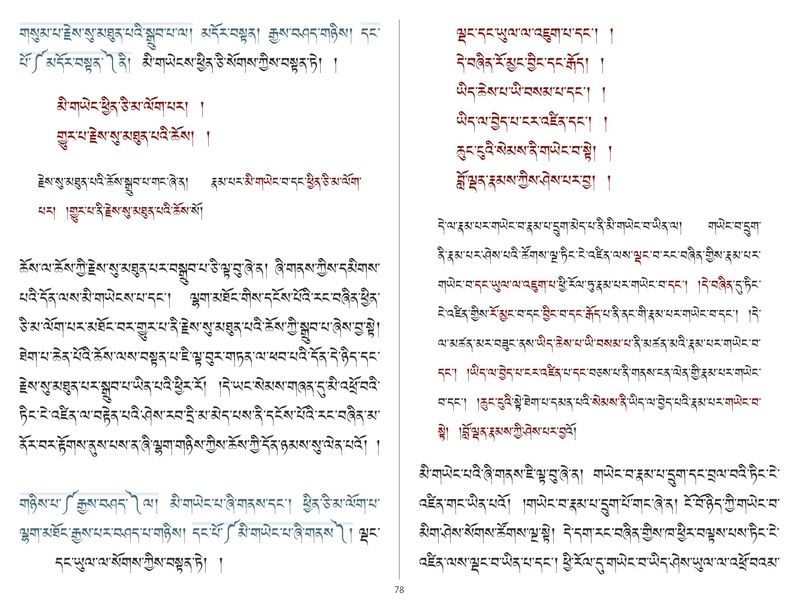 གསུམ་པ་རྗེས་སུ་མཐུན་པའི་སྒྲུབ་པ་ལ། མདོར་བསྟན། རྒྱས་བཤད་གཉིས། དང་
པོ་༼མདོར་བསྟན་༽ནི། མི་གཡེངས་ཕྱིན་ཅི་སོགས་ཀྱིས་བསྟན་ཏེ། །
མི་གཡེང་ཕྱིན་ཅི་མ་ལོག་པར། །
གྱུར་པ་རྗེས་སུ་མཐུན་པའི་ཆོས། །
རྗེས་སུ་མཐུན་པའི་ཆོས་སྒྲུབ་པ་གང་ཞེ་ན། རྣམ་པར་མི་གཡེང་བ་དང་ཕྱིན་ཅི་མ་ལོག་
པར། །གྱུར་པ་ནི་རྗེས་སུ་མཐུན་པའི་ཆོས་སོ།
ཆོས་ལ་ཆོས་ཀྱི་རྗེས་སུ་མཐུན་པར་བསྒྲུབ་པ་ཅི་ལྟ་བུ་ཞེ་ན། ཞི་གནས་ཀྱིས་དམིགས་
པའི་དོན་ལས་མི་གཡེངས་པ་དང་། ལྷག་མཐོང་གིས་དངོས་པོའི་རང་བཞིན་ཕྱིན་
ཅི་མ་ལོག་པར་མཐོང་བར་གྱུར་པ་ནི་རྗེས་སུ་མཐུན་པའི་ཆོས་ཀྱི་སྒྲུབ་པ་ཞེས་བྱ་སྟེ།
ཐེག་པ་ཆེན་པོའི་ཆོས་ལས་བསྟན་པ་ཇི་ལྟ་བུར་གཏན་ལ་ཕབ་པའི་དོན་དེ་ཉིད་དང་
རྗེས་སུ་མཐུན་པར་སྒྲུབ་པ་ཡིན་པའི་ཕྱིར་རོ། །དེ་ཡང་སེམས་གཞན་དུ་མི་འཕྲོ་བའི་
ཏིང་ངེ་འཛིན་ལ་བརྟེན་པའི་ཤེས་རབ་དྲི་མ་མེད་པས་ནི་དངོས་པོའི་རང་བཞིན་མ་
ནོར་བར་རྟོགས་ནུས་པས་ན་ཞི་ལྷག་གཉིས་ཀྱིས་ཆོས་ཀྱི་དོན་ཉམས་སུ་ལེན་པའོ། །
གཉིས་པ་༼རྒྱས་བཤད་༽ལ། མི་གཡེང་པ་ཞི་གནས་དང་། ཕྱིན་ཅི་མ་ལོག་པ་
ལྷག་མཐོང་རྒྱས་པར་བཤད་པ་གཉིས། དང་པོ་༼མི་གཡེང་པ་ཞི་གནས་༽། ལྡང་
དང་ཡུལ་ལ་སོགས་ཀྱིས་བསྟན་ཏེ། །
ལྡང་དང་ཡུལ་ལ་འཇུག་པ་དང་། །
དེ་བཞིན་རོ་མྱང་བྱིང་དང་རྒོད། །
ཡིད་ཆེས་པ་ཡི་བསམ་པ་དང་། །
ཡིད་ལ་བྱེད་པ་ངར་འཛིན་དང་། །
ཆུང་ངུའི་སེམས་ནི་གཡེང་བ་སྟེ། །
བློ་ལྡན་རྣམས་ཀྱིས་ཤེས་པར་བྱ། །
དེ་ལ་རྣམ་པར་གཡེང་བ་རྣམ་པ་དྲུག་མེད་པ་ནི་མི་གཡེང་བ་ཡིན་ལ། གཡེང་བ་དྲུག་
ནི་རྣམ་པར་ཤེས་པའི་ཚོགས་ལྔ་ཏིང་ངེ་འཛིན་ལས་ལྡང་བ་རང་བཞིན་གྱིས་རྣམ་པར་
གཡེང་བ་དང་ཡུལ་ལ་འཇུག་པ་ཕྱི་རོལ་ཏུ་རྣམ་པར་གཡེང་བ་དང་། །དེ་བཞིན་དུ་ཏིང་
ངེ་འཛིན་གྱིས་རོ་མྱང་བ་དང་བྱིང་བ་དང་རྒོད་པ་ནི་ནང་གི་རྣམ་པར་གཡེང་བ་དང་། །དེ་
ལ་མཚན་མར་བཟུང་ནས་ཡིད་ཆེས་པ་ཡི་བསམ་པ་ནི་མཚན་མའི་རྣམ་པར་གཡེང་བ་
དང་། །ཡིད་ལ་བྱེད་པ་ངར་འཛིན་པ་དང་བཅས་པ་ནི་གནས་ངན་ལེན་གྱི་རྣམ་པར་གཡེང་
བ་དང་། །ཆུང་ངུའི་སྟེ་ཐེག་པ་དམན་པའི་སེམས་ནི་ཡིད་ལ་བྱེད་པའི་རྣམ་པར་གཡེང་བ་
སྟེ། །བློ་ལྡན་རྣམས་ཀྱི་ཤེས་པར་བྱའོ།
མི་གཡེང་པའི་ཞི་གནས་ཇི་ལྟ་བུ་ཞེ་ན། གཡེང་བ་རྣམ་པ་དྲུག་དང་བྲལ་བའི་ཏིང་ངེ་
འཛིན་གང་ཡིན་པའོ། །གཡེང་བ་རྣམ་པ་དྲུག་པོ་གང་ཞེ་ན། ངོ་བོ་ཉིད་ཀྱི་གཡེང་བ་
མིག་ཤེས་སོགས་ཚོགས་ལྔ་སྟེ། དེ་དག་རང་བཞིན་གྱིས་ཁ་ཕྱིར་བལྟས་པས་ཏིང་ངེ་
འཛིན་ལས་ལྡང་བ་ཡིན་པ་དང་། ཕྱི་རོལ་དུ་གཡེང་བ་ཡིད་ཤེས་ཡུལ་ལ་འཕྲོ་བའམ་
78